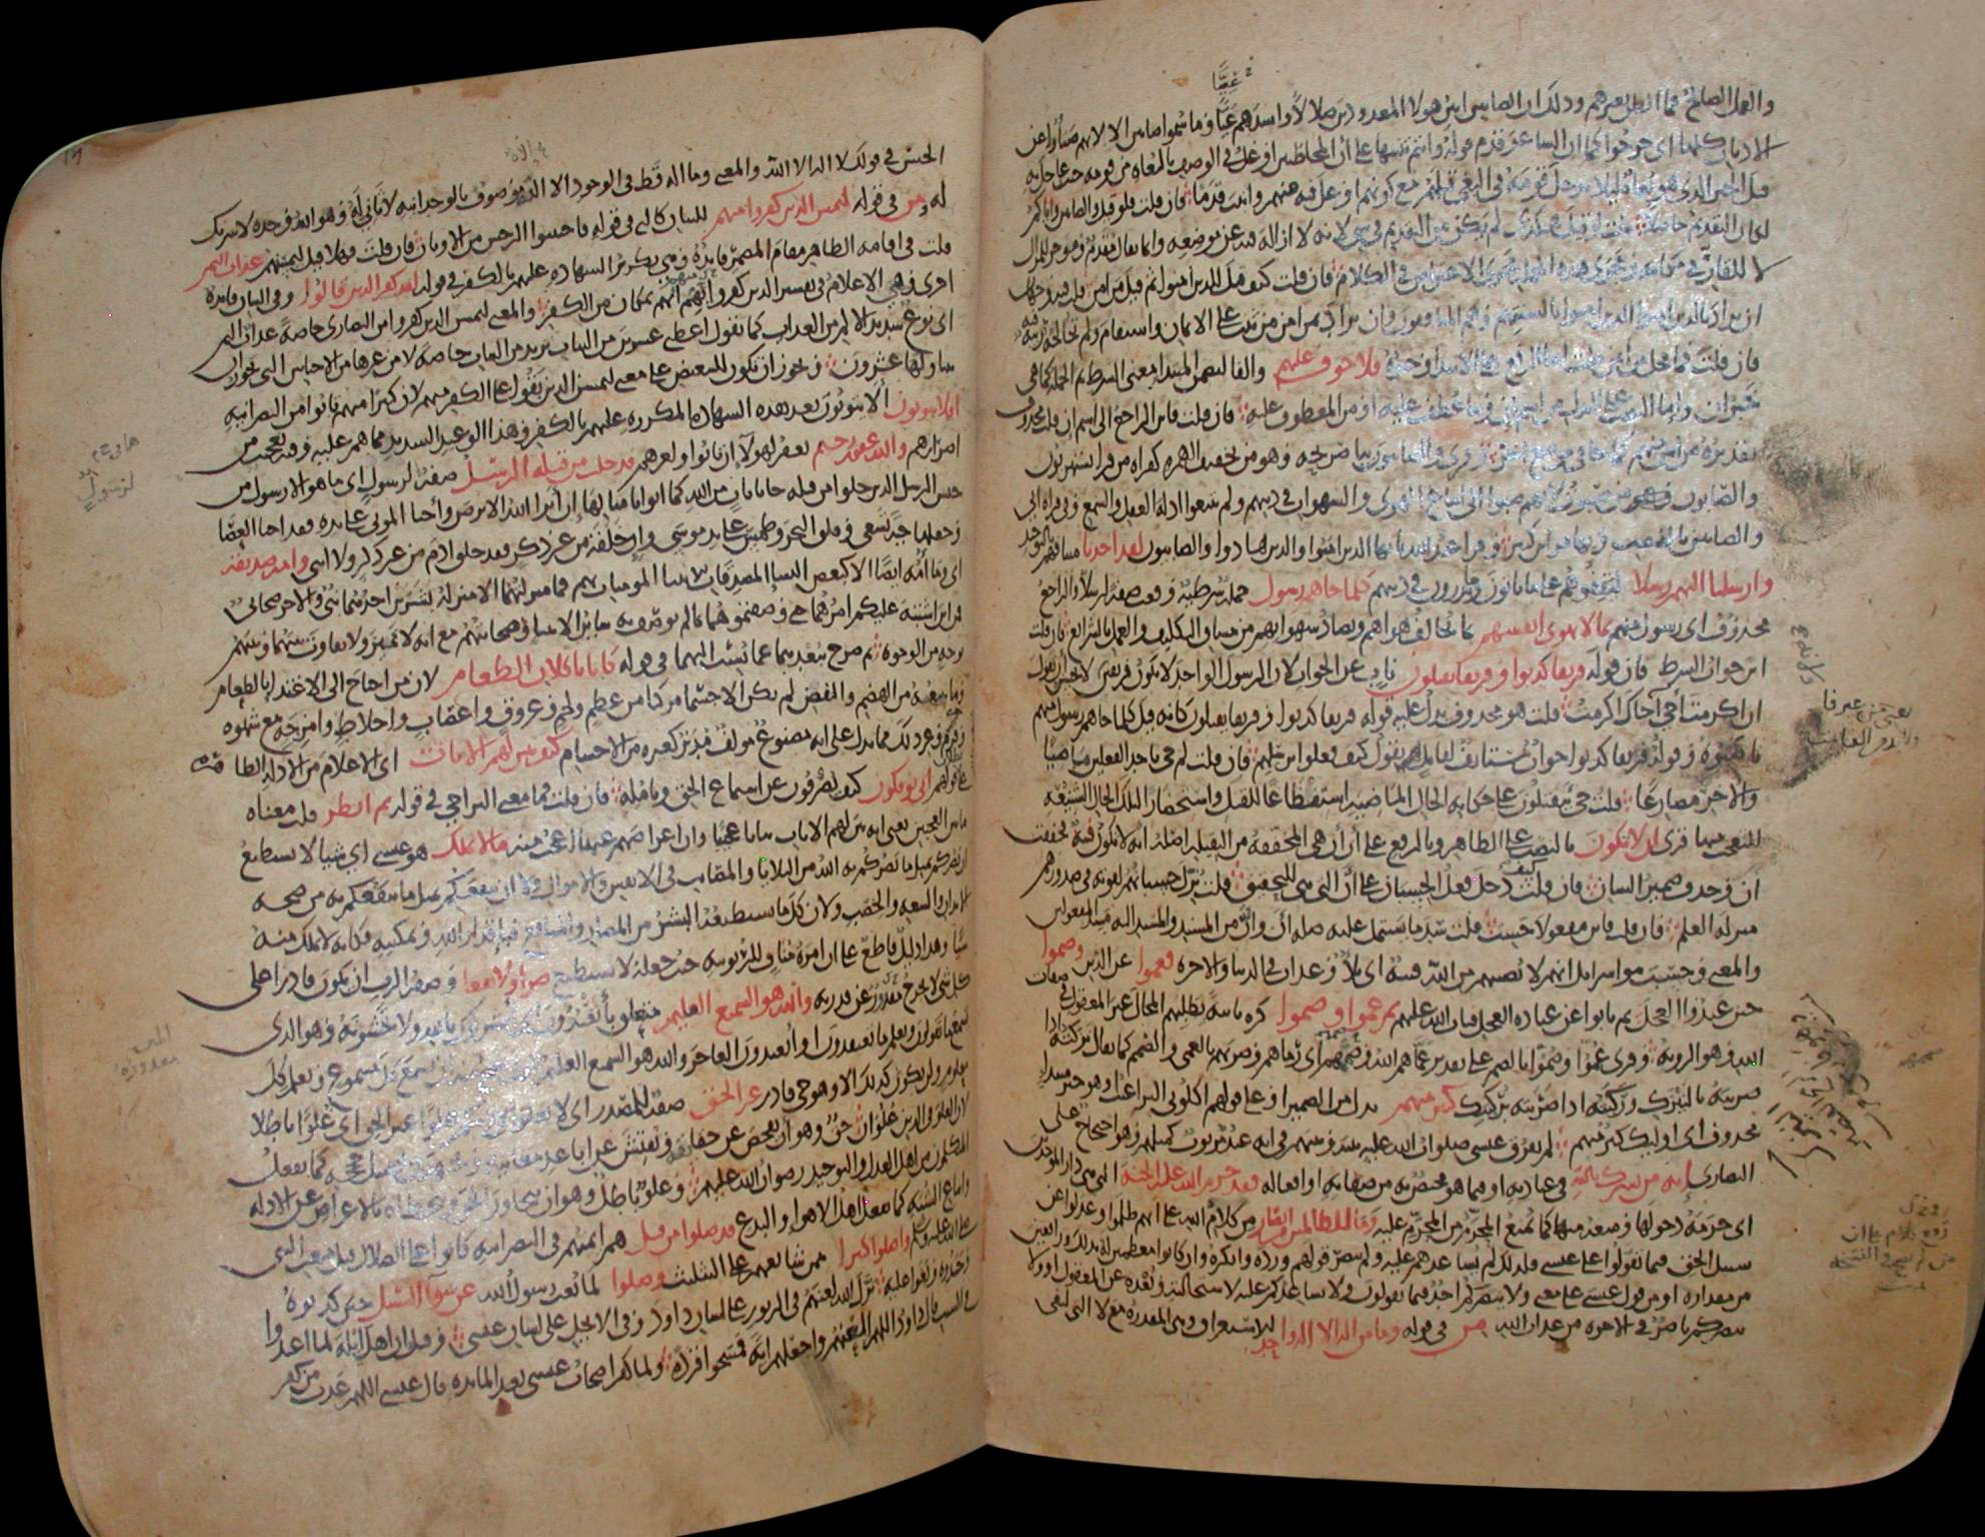 والعمل الصالح فما الظن بغيرهم وذلك ان الصابئين ابين هولا المعدودين ضلالا واشدهم غيا وما سموا صابئين الا لانهم صبأوا عن
الاديان كلها اى خرجوا كما ان الشاعر قدم قوله وانتم تنبيها على ان المخاطبين اوغل في الوصف بالبغاه من قومه حيث عاجل به
قبل الخبر الذي هو بغاة ليلا يدخل قومه في البغي قبلهم مع كونهم اوغل فيه منهم واثبت قدما فان قلت فلو قيل والصابئين واياكم
لكان التقديم حاصلا قلت لو قيل هكذا لم يكن من التقديم في شي لانه لا ازاله فيه عن موضعه وانما يقال مقدم وموخر للمزال
لا للقار في مكانه ومجرى هذه الجملة مجرى الاعتراض في الكلام فان قلت كيف قيل الذين آمنوا ثم قيل من آمن قلت فيه وجهان
ان يراد بالذين آمنوا الذين آمنوا بالسنتهم وهم المنافقون وان يراد بمن امن من ثبت على الايمان واستقام ولم تخالجه ريبة فيه
فان قلت فما محل من آمن قلت اما الرفع على الابتدا وخبره فلا خوف عليهم والفا لتضمن المبتدا معنى الشرط ثم الجملة كما هي
خبر ان واما النصب على البدل من اسم ان وما عطف عليه او من المعطوف عليه فان قلت فاين الراجع الى اسم ان قلت محذوف
تقديره من آمن منهم كما جا في موضع اخر وقرى والصابيون بيا صريحه وهو من تخفيف الهمزه كقراه من قرا يستهزيون
والصابون وهو من صبوت لانهم صبوا الى اتباع الهوى والشهوات في دينهم ولم يتبعوا ادلة العقل والسمع وفي قراه ابي
والصابئين بالنصب وبها قرا ابن كثير وقرا عبد الله يا ايها الذين امنوا والذين هادوا والصابيون لقد اخذنا ميثاقهم بالتوحيد
وارسلنا اليهم رسلا ليقفوهم على ما ياتون وما يذرون في دينهم كلما جاهم رسول جملة شرطية وقعت صفة لرسلا والراجع
محذوف اى رسول منهم بما لا تهوى انفسهم بما يخالف هواهم ويضاد شهواتهم من مشاق التكليف والعمل بالشرائع فان قلت
اين جواب الشرط فان قوله فريقا كذبوا وفريقا يقتلون ناب عن الجواب لان الرسول الواحد لا يكون فريقين لانه لا يحسن ان تقول
ان اكرمت أخي أخاك اكرمت قلت هو محذوف يدل عليه قوله فريقا كذبوا وفريقا يقتلون كانه قيل كلما جاهم رسول منهم
ناصبوه وقوله فريقا كذبوا جواب مستانف لقايل يقول كيف فعلوا برسلهم فان قلت لم جي باحد الفعلين ماضيا
والاخر مضارعا قلت جي بيقتلون على حكايه الحال الماضية استفظاعا للقتل واستحضارا لتلك الحال الشنيعه
للتعجب منها قرى ان لا تكون بالنصب على الظاهر وبالرفع على أن أن هي المخففه من الثقيلة اصله انه لا تكون فتنة فخففت
أن وحذف ضمير الشان فان قلت كيف دخل فعل الحسبان على أن التي هي للتحقيق قلت نزل حسبانهم لقوته في صدورهم
منزله العلم فان قلت فاين مفعولا حسب قلت سد ما يشتمل عليه صلة أن وأن من المسند والمسند اليه مسد المفعولين
والمعنى وحسب بنو اسرائل انهم لا تصيبهم من الله فتنة اى بلا وعذاب في الدنيا والاخره فعموا عن الدين وصموا
حين عبدوا العجل ثم تابوا عن عباده العجل فتاب الله عليهم ثم عموا وصموا كره ثانية بطلبهم المحال غير المعقول في صفات
الله وهو الرويه وقرى عموا وصموا بالضم على تقدير عماهم الله وصمهم اى رماهم وضربهم بالعمى والصمم كما يقال نزكته اذا
ضربته بالنيزك وركبته اذا ضربته بركبتك كثير منهم بدل من الضمير او على قولهم اكلوني البراغيث او هو خبر مبتدا
محذوف اى اوليك كثير منهم لم يفرق عيسى صلوات الله عليه بينه وبينهم في انه عبد مربوب كمثلهم وهو احتجاج على
النصارى انه من يشرك بالله في عبادته او فيما هو مختص به من صفاته او افعاله فقد حرم الله عليه الجنة التي هي دار الموحدين
اى حرمه دخولها ومنعه منها كما يمنع المحرم من المحرم عليه وما للظالمين من انصار من كلام الله على انهم ظلموا وعدلوا عن
سبيل الحق فيما تقولوا على عيسى فلذلك لم يساعدهم عليه ولم ينصر قولهم ورده وانكره وان كانوا معظمين له بذلك ورافعين
من مقداره او من قول عيسى على معنى ولا ينصركم احد فيما تقولون ولا يساعدكم عليه لاستحالته وبعده عن المعقول او ولا
ينصركم ناصر في الاخره من عذاب الله من في قوله وما من اله الا اله واحد للاستغراق وهي المقدره مع لا التي لنفي
الجنس في قولك لا اله الا الله والمعنى وما اله قط في الوجود الا اله موصوف بالوحدانيه لا ثاني له وهو الله وحده لا شريك
له ومن في قوله ليمسن الذين كفروا منهم للبيان كالتي في قوله فاجتنبوا الرجس من الاوثان فان قلت فهلا قيل ليمسنهم عذاب اليم
قلت في اقامه الظاهر مقام المضمر فايدة وهي تكرير الشهاده عليهم بالكفر في قوله لقد كفر الذين قالوا وفي البيان فايدة
اخرى وهي الاعلام في تفسير الذين كفروا منهم انهم بمكان من الكفر والمعنى ليمسن الذين كفروا من النصارى خاصة عذاب اليم
اى نوع شديد الالم من العذاب كما تقول اعطني عشرين من الثياب تريد من الثياب خاصة لا من غيرها من الاجناس التي يجوز ان
يتناولها عشرون ويجوز ان تكون للتبعيض على معنى ليمسن الذين بقوا على الكفر منهم لان كثيرا منهم تابوا من النصرانيه
افلا يتوبون ألا يتوبون بعد هذه الشهاده المكرره عليهم بالكفر وهذا الوعيد الشديد مما هم عليه وفيه تعجب من
اصرارهم والله غفور رحيم يغفر لهولا ان تابوا ولغيرهم قد خلت من قبله الرسل صفة لرسول اى ما هو الا رسول من
جنس الرسل الذين خلوا من قبله جا بايات من الله كما اتوا بامثالها ان أبرا الله الابرص وأحيا الموتى على يده فقد احيا العصا
وجعلها حية تسعى وفلق البحر وطمس على يد موسى وان خلقه من غير ذكر فقد خلق آدم من غير ذكر ولا انثى وامه صديقة
اى وما أمه ايضا الا كبعض النسا المصدقات للانبيا المومنات بهم فما منزلتهما الا منزلة بشرين احدهما نبي والاخر صحابي
فمن اين اشتبه عليكم امرهما حتى وصفتموهما بما لم يوصف به ساير الانبيا وصحابتهم مع انه لا تميز ولا تفاوت بينهما وبينهم
بوجه من الوجوه ثم صرح ببعدهما عما نسب اليهما في قوله كانا ياكلان الطعام لان من احتاج الى الاغتذا بالطعام
وما يتبعه من الهضم والنفض لم يكن الا جسما مركبا من عظم ولحم وعروق واعصاب واخلاط وامزجه مع شهوه
وقرم وغير ذلك مما يدل على انه مصنوع مولف مدبر كغيره من الاجسام كيف نبين لهم الايات اى الاعلام من الادلة الظاهره
على بطلان قولهم انى يوفكون كيف يصرفون عن استماع الحق وتامله فان قلت فما معنى التراخي في قوله ثم انظر قلت معناه
ما بين العجبين يعني انه بين لهم الايات بيانا عجيبا وان اعراضهم عنها اعجب منه ما لا يملك هو عيسى اى شيا لا يستطيع
ان يضركم بمثل ما يضركم به الله من البلايا والمصايب في الانفس والاموال ولا ان ينفعكم بمثل ما ينفعكم به من صحه
الابدان والسعه والخصب ولان كل ما يستطيعه البشر من المضار والمنافع فباقدار الله وتمكينه فكانه لا يملك منه
شيا وهذا دليل قاطع على ان امره مناف للربوبيه حيث جعله لا يستطيع ضرا ولا نفعا وصفة الرب ان يكون قادرا على
كل شي لا يخرج مقدور عن قدرته والله هو السميع العليم متعلق بأتعبدون اى اتشركون بالله ولا تخشونه وهو الذي
يسمع ما تقولون ويعلم ما تعتقدون او أتعبدون العاجز والله هو السميع العليم الذي يصح منه ان يسمع كل مسموع ويعلم كل
معلوم ولن يكون كذلك الا وهو حي قادر غير الحق صفة للمصدر اى لا تغلوا في دينكم غلوا غير الحق اى غلوا باطلا
لان الغلو في الدين غلوان حق وهو ان يفحص عن حقايقه ويفتش عن اباعد معانيه ويجتهد في تحصيل حججه كما يفعل
المتكلمون من اهل العدل والتوحيد رضوان الله عليهم وغلو باطل وهو ان يتجاوز الحق ويتخطاه بالاعراض عن الادله
واتباع الشبه كما يفعل اهل الاهوا والبدع قد ضلوا من قبل هم ايمتهم في النصرانيه كانوا على الضلال قبل مبعث النبي
صلى الله عليه وسلم واضلوا كثيرا ممن شايعهم على التثليث وضلوا لما بعث رسول الله عن سوآ السبيل حين كذبوه
وحسدوه وبغوا عليه نزل الله لعنهم في الزبور على لسان داود وفي الانجيل على لسان عيسى وقيل ان اهل ايلة لما اعتدوا
في السبت قال داود اللهم العنهم واجعلهم اية فمسخوا قردة ولما كفر اصحاب عيسى بعد المائده قال عيسى اللهم عذب من كفر